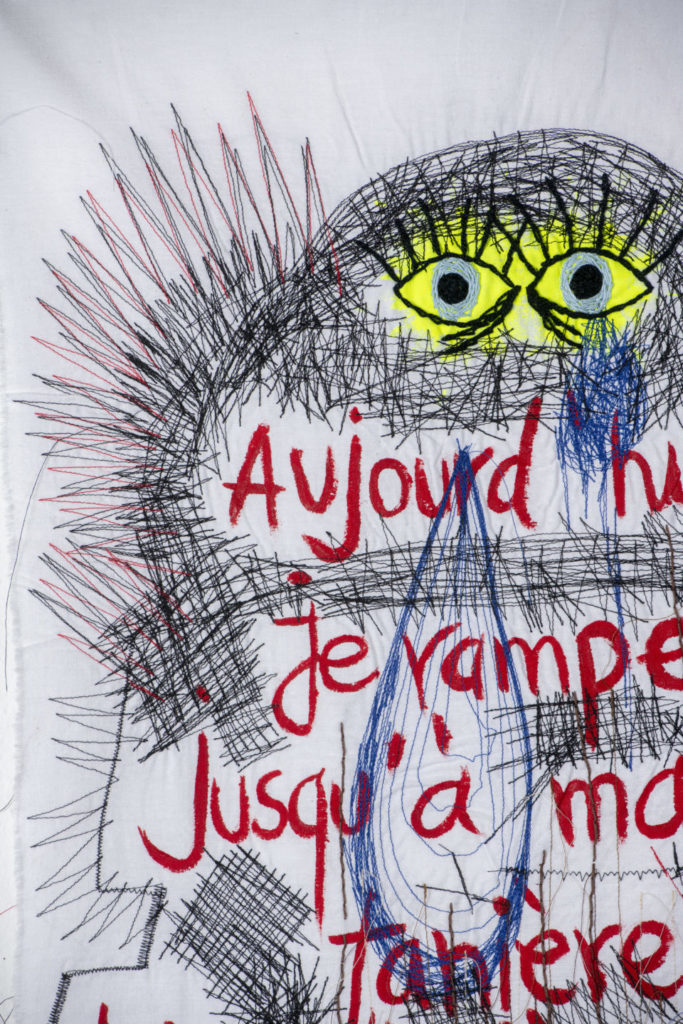 Aujourd'hu
je rampe
Jusqu'à ma
tanière